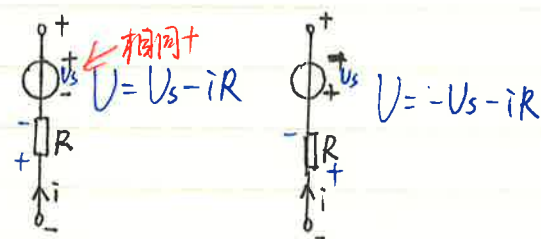 +
+
相同+
+
Us
-
U=Us-iR
-
R
+
i
-
+
-
Us
+
U=-Us-iR
-
R
+
i
-